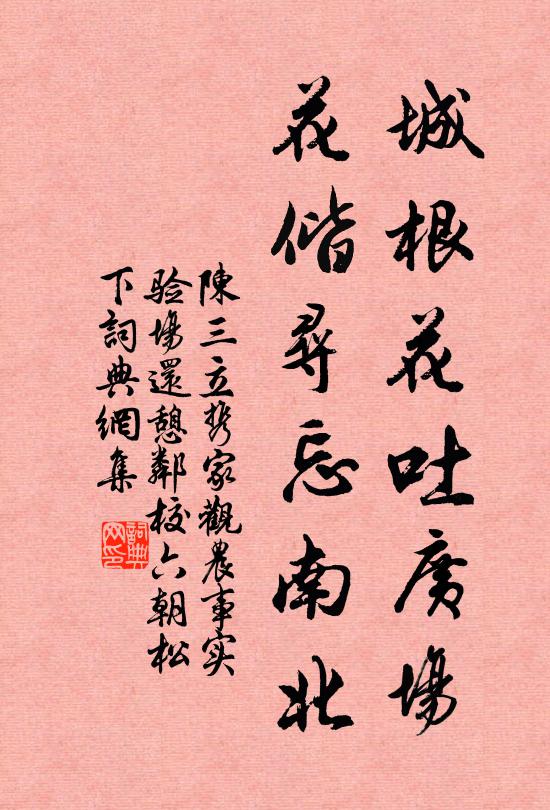 城根花吐廣場
花偕尋忘南北
陳三立携家觀農事实
验場還憩鄰校六朝松
下詞典網集
詞典网印